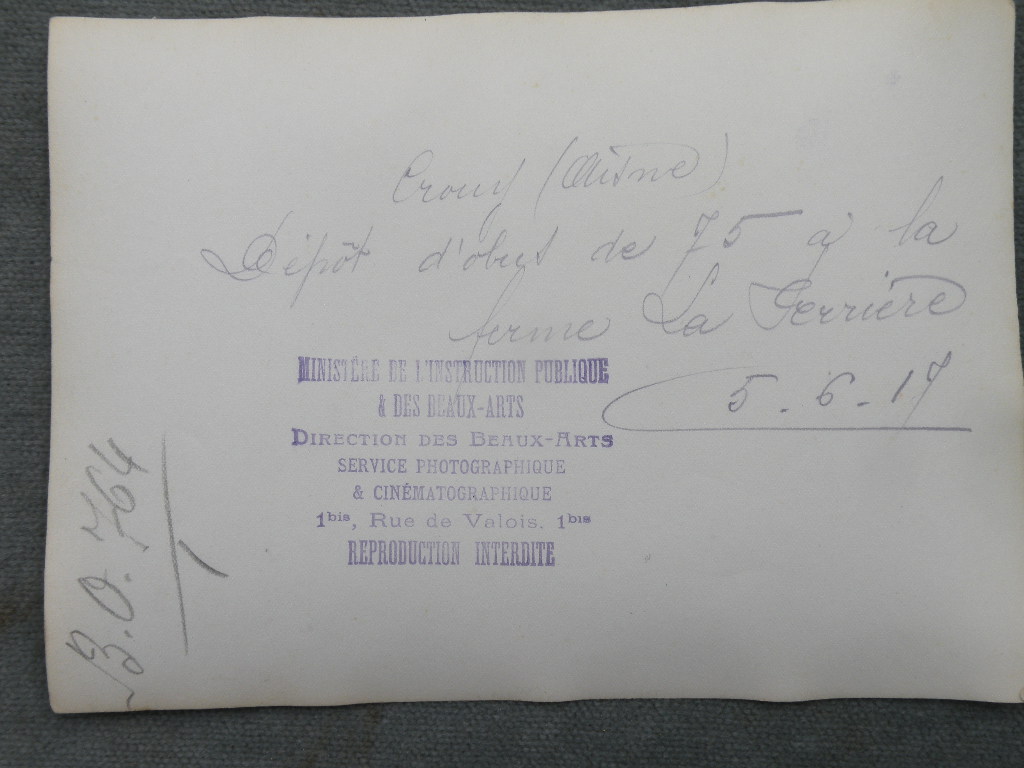 Crouy (Aisne)
Dépôt d'obus de 75 à la
ferme La Perrière
5-6-17
MINISTÈRE DE L'INSTRUCTION PUBLIQUE
& DES BEAUX-ARTS
DIRECTION DES BEAUX-ARTS
SERVICE PHOTOGRAPHIQUE
& CINÉMATOGRAPHIQUE
1bis, Rue de Valois. 1bis
REPRODUCTION INTERDITE
B.O. 764